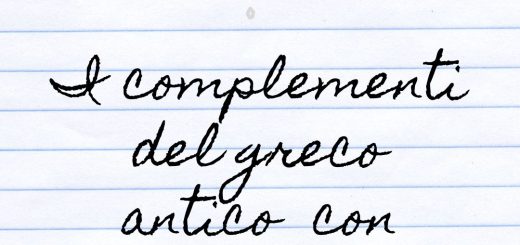 I complementi
del greco
antico con